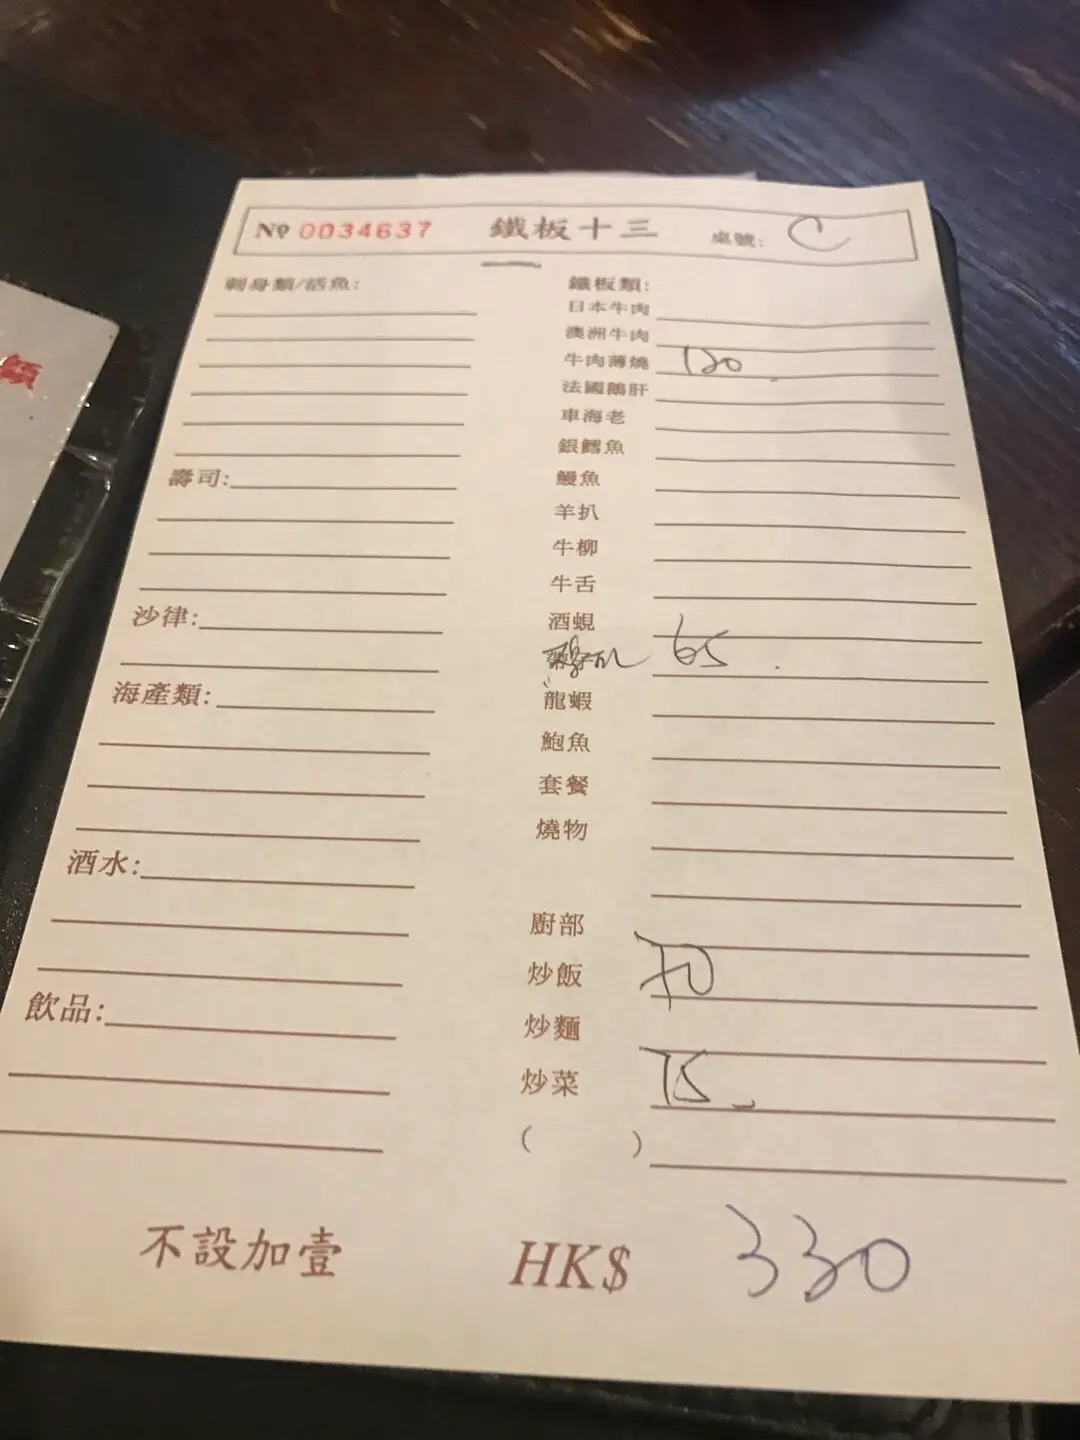 № 0034637 鐵板十三 桌號: C
刺身類/活魚:
壽司:
沙律:
海產類:
酒水:
飲品:
鐵板類:
日本牛肉
澳洲牛肉
牛肉薄燒 120
法國鵝肝
車海老
銀鱈魚
鰻魚
羊扒
牛柳
牛舌
酒蜆
65
龍蝦
鮑魚
套餐
燒物
廚部
炒飯 70
炒麵
炒菜 75
( )
不設加壹 HK$ 330